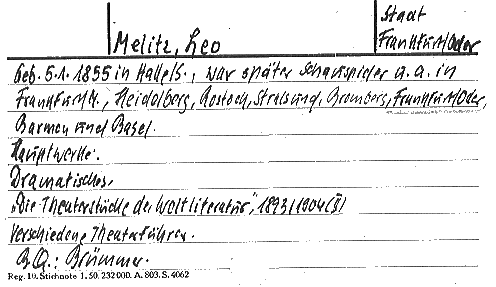 Stadt
Melitz, Leo Frankfurt/Oder
Geb. 5.1. 1855 in Halle/S., war später Schauspieler u.a. in
Frankfurt/M., Heidelberg, Rostock, Stralsund, Bromberg, Frankfurt/Oder,
Barmen und Basel.
Hauptwerke:
Dramatisches,
"Die Theaterstücke der Weltliteratur", 1893, 1904 (II)
Verschiedene Theaterführer.
B.Q.: Brümmer.
Reg. 10. Stichnote 1. 50. 232 000. A. 803. S. 4062